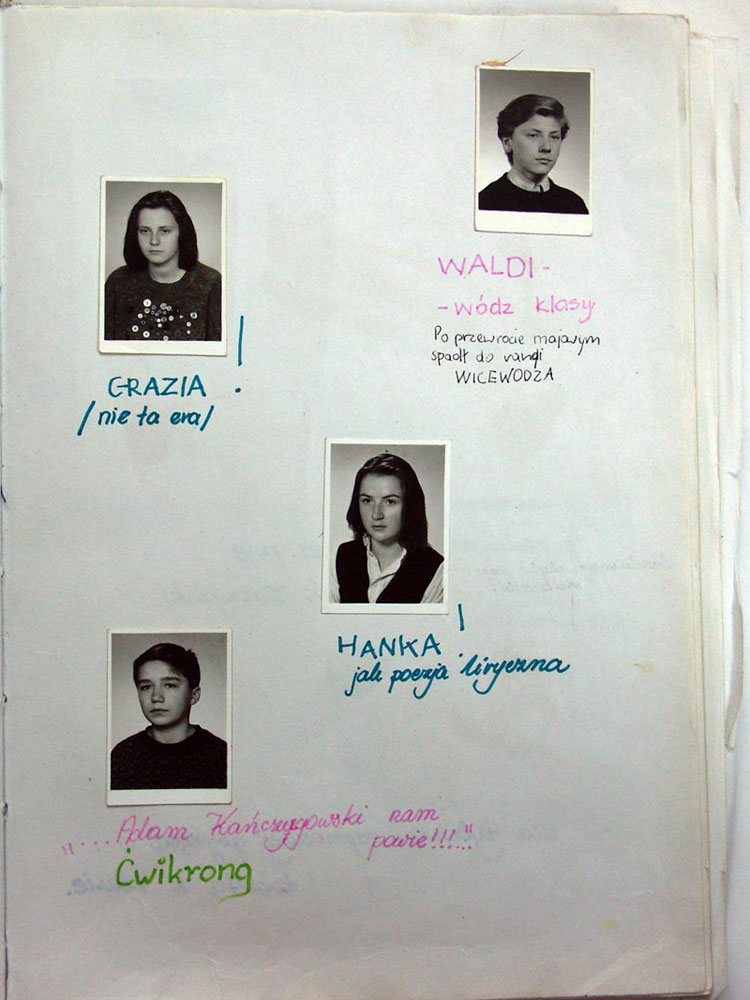 WALDI -
- wódz klasy
Po przewrocie majowym
spadł do rangi
WICEWODZA
GRAZIA !
/nie ta era/
HANKA !
jak poezja liryczna
„... Adam Kańczugowski nam
powie!!!..."
Ćwikrong